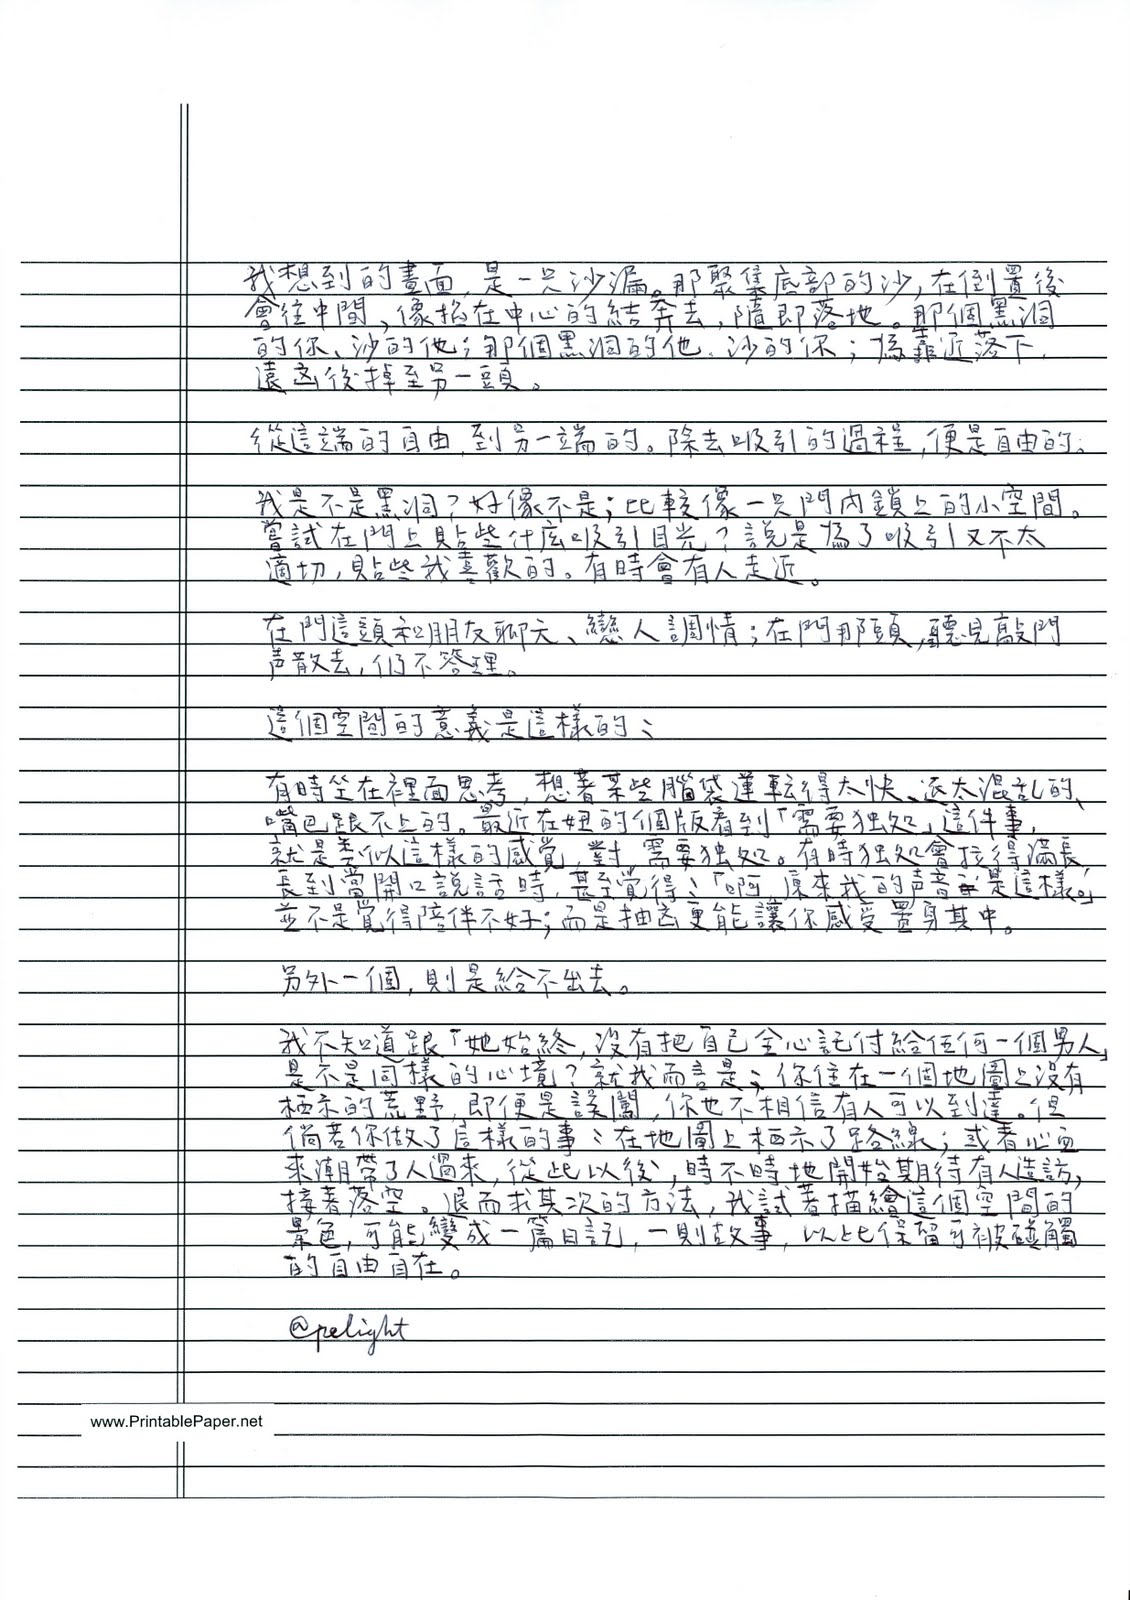 我想到的畫面,是一只沙漏。那聚集底部的沙,在倒置後
會往中間、像掐在中心的結奔去,隨即落地。那個黑洞
的你、沙的他;那個黑洞的他、沙的你;為靠近落下,
遠离後掉至另一頭。
從這端的自由,到另一端的。除去吸引的過程,便是自由的。
我是不是黑洞?好像不是;比較像一只門內鎖上的小空間。
嘗試在門上貼些什庅吸引目光?說是為了吸引又不太
適切,貼些我喜歡的。有時會有人走近。
在門這頭和朋友聊天、戀人調情;在門那頭,聽見敲門
声散去,仍不答理。
這個空間的意義是這樣的:
有時坐在裡面思考,想著某些腦袋運転得太快、还太混乱的、
嘴巴跟不上的。最近在妞的個版看到「需要独处」這件事,
就是类似這樣的感覚,對,需要独处。有時独处會拉得滿長,
長到當開口說話時,甚至覚得:「啊,原來我的声音是這樣。」
並不是覚得陪伴不好;而是抽离更能讓你感受置身其中。
另外一個,則是給不出去。
我不知道跟「她始終,沒有把自己全心託付給任何一個男人」
是不是同樣的心境?就我而言是:你住在一個地圖上沒有
标示的荒野,即便是誤闖,你也不相信有人可以到達。但
倘若你做了這樣的事:在地圖上标示了路線;或者心血
來潮帶了人過來,從此以後,時不時地開始期待有人造訪,
接著落空。退而求其次的方法,我試著描繪這個空間的
景色,可能變成一篇日記,一則故事,以此保留可被碰觸
的自由自在。
@pelight
www.PrintablePaper.net